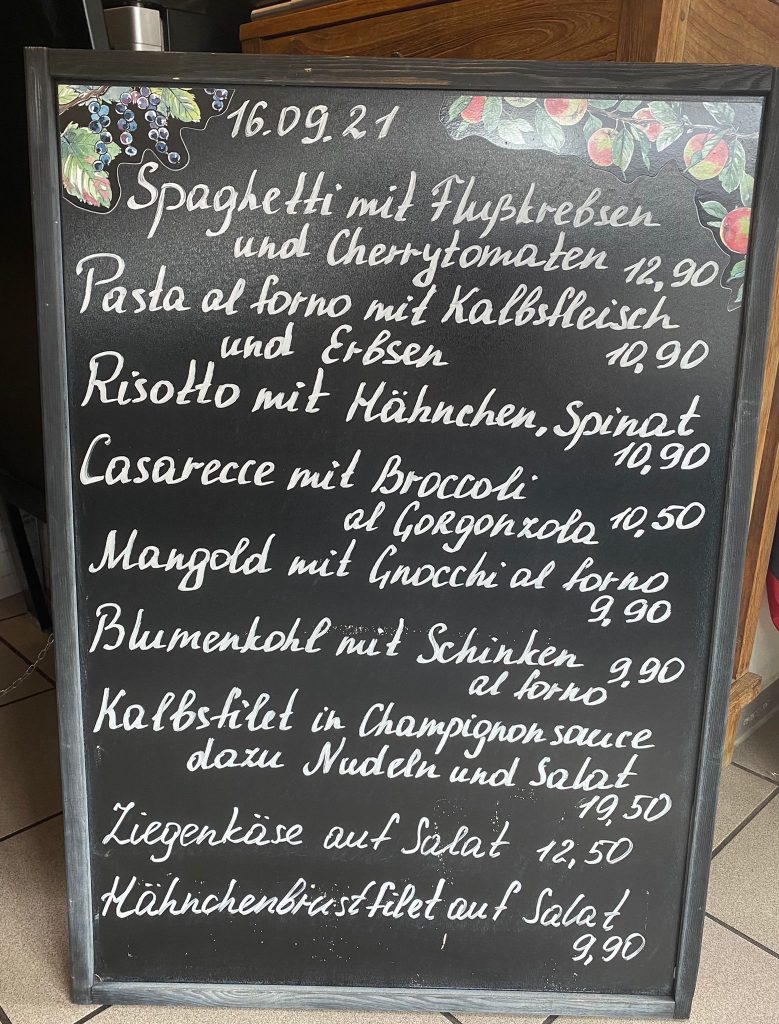 16.09.21
Spaghetti mit Flußkrebsen
und Cherrytomaten 12,90
Pasta al forno mit Kalbsfleisch
und Erbsen 10,90
Risotto mit Hähnchen, Spinat
10,90
Casarecce mit Broccoli
al Gorgonzola 10,50
Mangold mit Gnocchi al forno
9,90
Blumenkohl mit Schinken 9,90
al forno
Kalbsfilet in Champignonsauce
dazu Nudeln und Salat
19,50
Ziegenkäse auf Salat 12,50
Hähnchenbrustfilet auf Salat
9,90